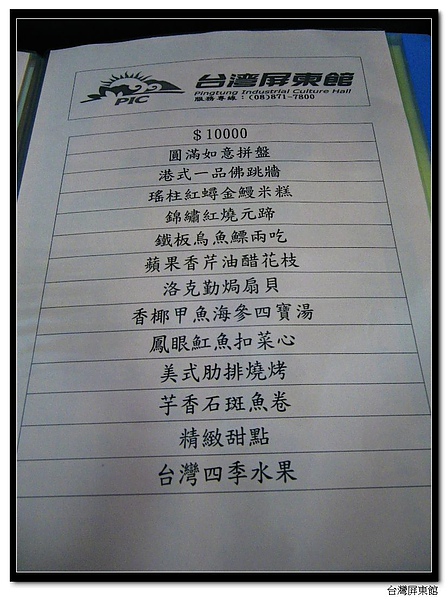 PIC
台灣屏東館
Pingtung Industrial Culture Hall
服務專線：(08)871-7800
$10000
圓滿如意拼盤
港式一品佛跳牆
瑤柱紅蟳金鰻米糕
錦繡紅燒元蹄
鐵板烏魚鰾兩吃
蘋果香芹油醋花枝
洛克勤焗扇貝
香椰甲魚海參四寶湯
鳳眼魟魚扣菜心
美式肋排燒烤
芋香石斑魚卷
精緻甜點
台灣四季水果
台灣屏東館